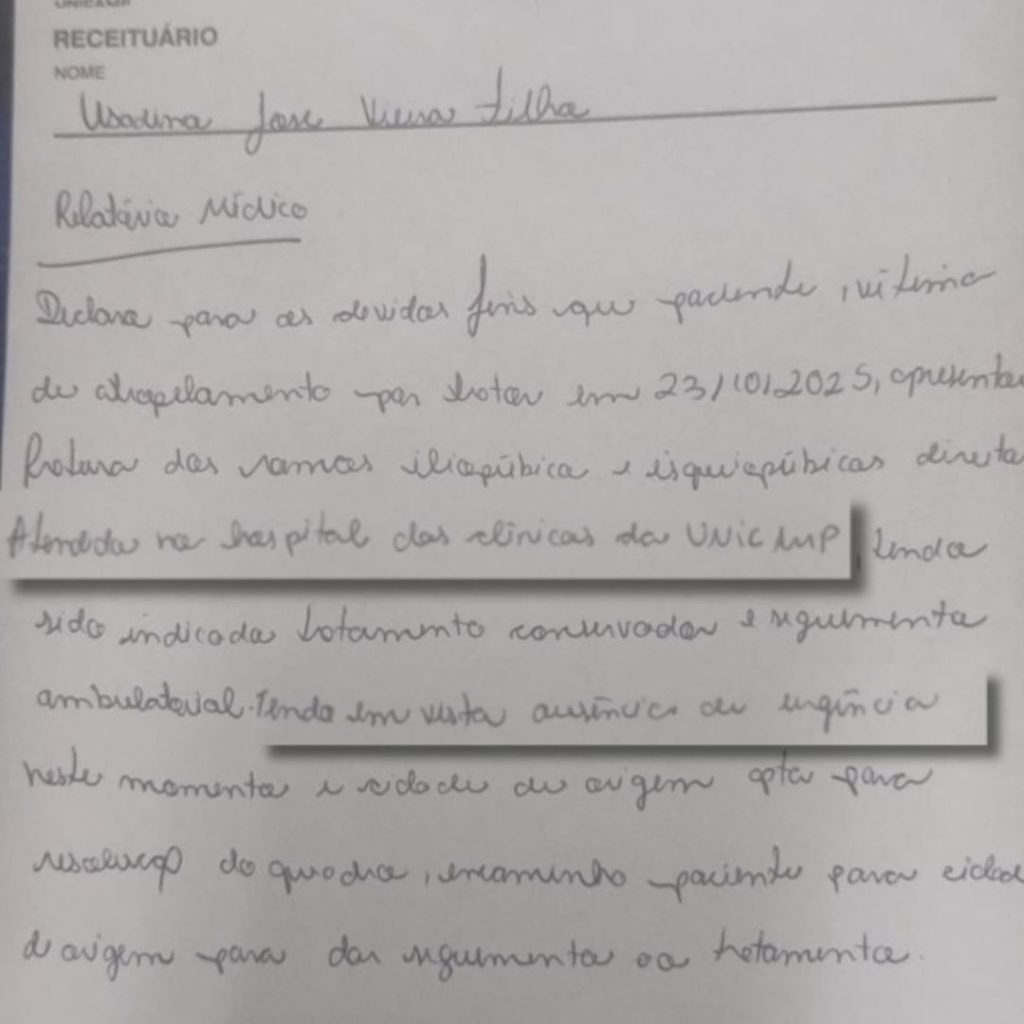 UNICAMP
RECEITUÁRIO
NOME
José Vieira Filha
Relatório Médico
Declaro para os devidos fins que paciente, vítima
de atropelamento por trator em 23/10/2025, apresentou
fratura dos ramos iliopúbica e isquiopúbicas direita
Atendida no hospital das clínicas da UNICAMP, tendo
sido indicado tratamento conservador e seguimento
ambulatorial. Tendo em vista ausência de urgência
neste momento e cidade de origem apta para
resolução do quadro, encaminho paciente para cidade
de origem para dar seguimento ao tratamento.